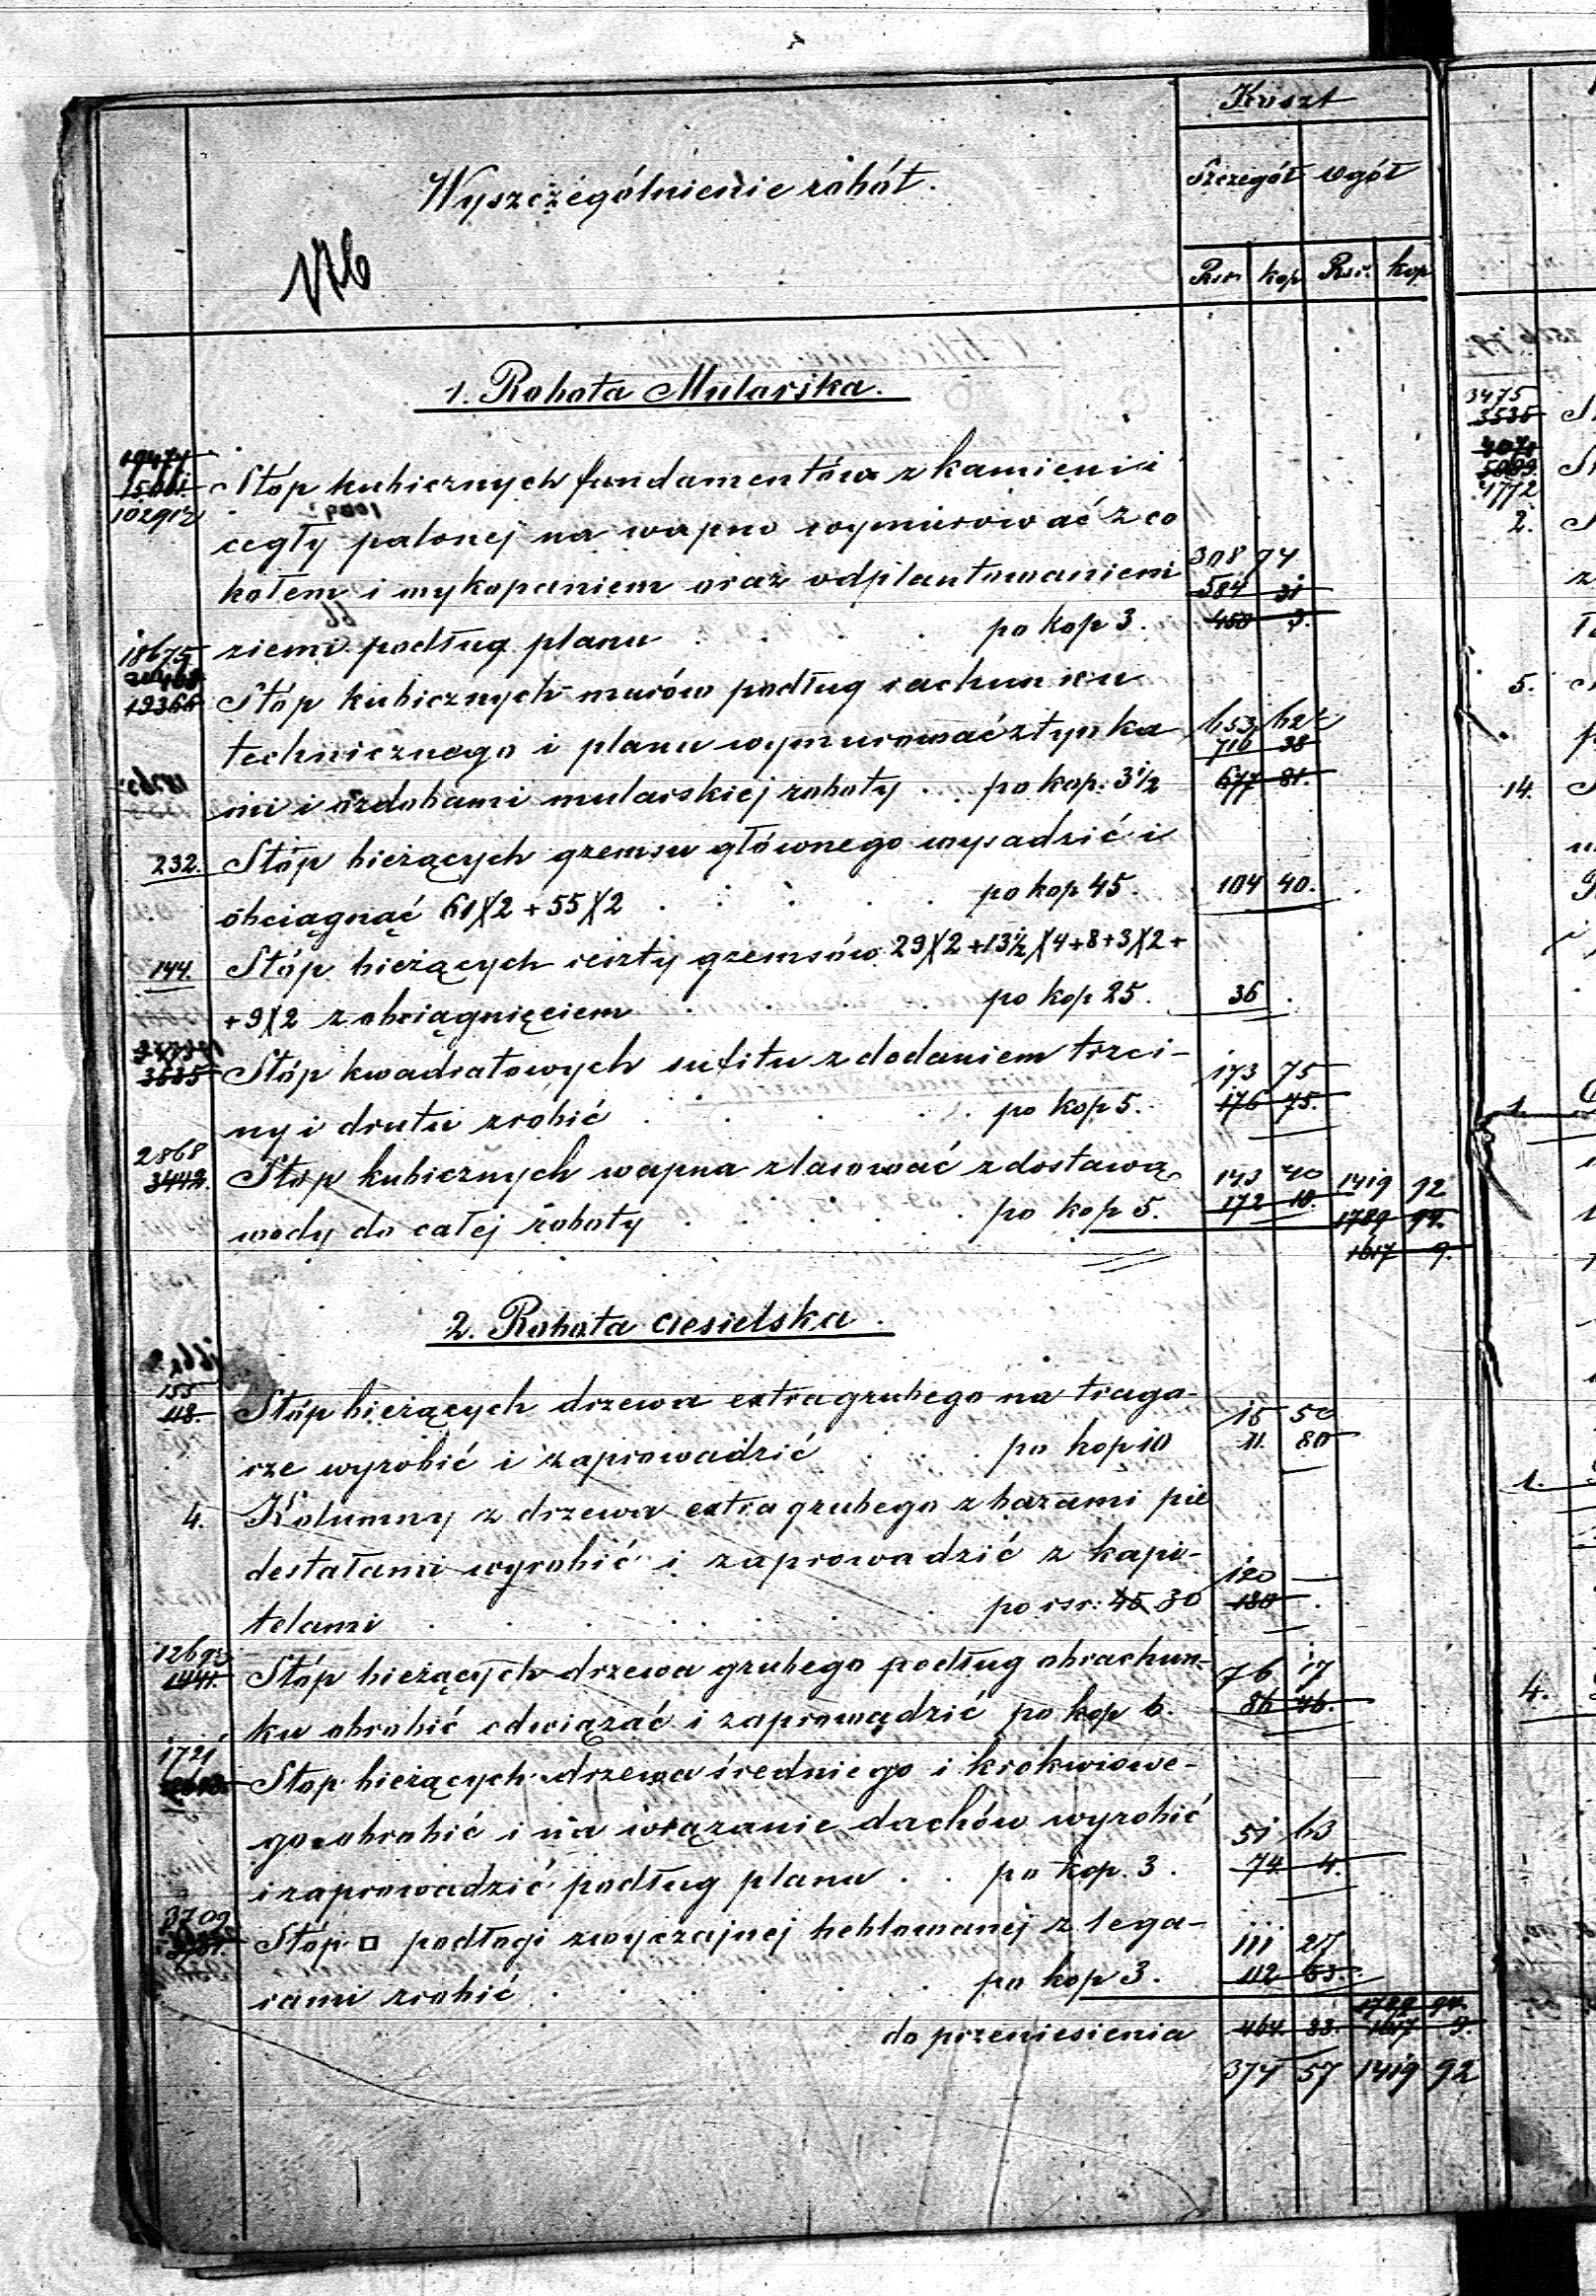 Koszt
Wyszczególnienie robót.
Szczegół wgół
Rsr. kop Rsr. kop
1. Robota Mularska.
Stóp kubicznych fundamentów z kamieni i
cegły palonej na wapno wymurować z co
kołem i wykopaniem oraz odplantowaniem
308 94
584 31
ziemi podług planu . . . . po kop 3. 450 3.
18675
19366 Stóp kubicznych murów podług rachunku
technicznego i planu wymurować z tynka
716 38
mi i ozdobami mularskiej roboty . . po kop: 3½ 677 81.
232. Stóp bieżących gzemsu głównego wysadzić i
obciągnąć 61)(2 + 55)(2 . . . . . po kop 45. 104 40.
144. Stóp bieżących reszty gzemsów 29)(2 + 13½)(4 + 8 + 3)(2 +
+ 9)(2 z obciągnięciem . . . po kop 25. 36 .
3535 Stóp kwadratowych sufitu z dodaniem trzci-
173 75
ny i drutu zrobić . . . . . po kop 5. 176 75.
2868
3442. Stóp kubicznych wapna zlasować z dostawą
143 40 1419 92
wody do całej roboty . . . . . po kop 5. 172 10. 1789 94.
1617 9.
2. Robota ciesielska.
155
118. Stóp bieżących drzewa extragrubego na traga-
15 50
rze wyrobić i zaprowadzić . . . po kop 10 11. 80
4. Kolumny z drzewa extra grubego z bazami pie
destałami wyrobić i zaprowadzić z kapi-
120 —
telami . . . . . . . po rsr: 45 30 180 .
1441. Stóp bieżących drzewa grubego podług obrachun-
76 17
ku obrobić odwiązać i zaprowadzić po kop 6. 86 46.
1721
Stóp bieżących drzewa średniego i krokwiowe-
go obrobić i na wiązanie dachów wyrobić
51 63
i zaprowadzić podług planu . . po kop. 3. 74 4.
3709
Stóp □ podłogi zwyczajnej heblowanej z lega-
111 27
rami zrobić . . . . . . . po kop 3. 112 53.
1789 94.
do przeniesienia 464. 83. 1617 9.
374 57 1419 92
3475
3535
1772
2.
5.
14.
1.
1.
4.